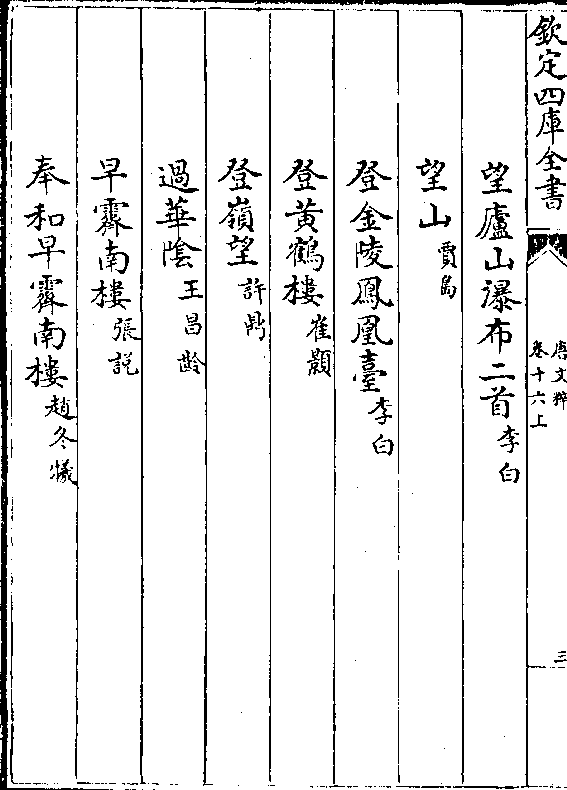 欽定四庫全書
唐文粹
卷十六上
三
望廬山瀑布二首 李白
望山 賈島
登金陵鳳凰臺 李白
登黃鶴樓 崔顥
登嶺望 許鼎
過華陰 王昌齡
早霽南樓 張説
奉和早霽南樓 趙冬曦